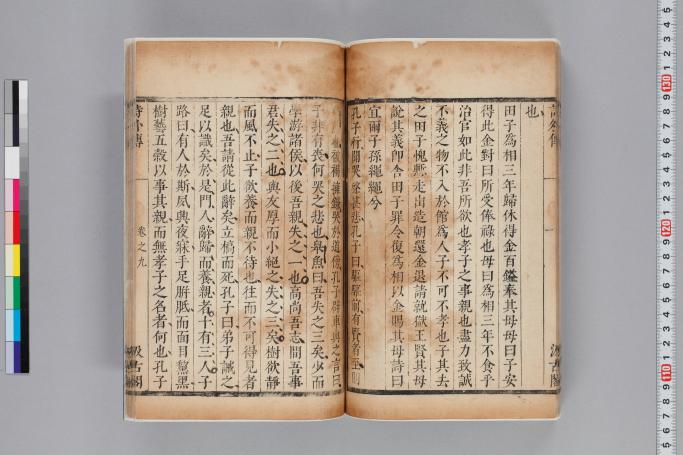 也
田子為相三年歸休得金百鎰奉其母母曰子安
得此金對曰所受俸祿也母曰為相三年不食乎
治官如此非吾所欲也孝子之事親也盡力致誠
不義之物不入於館為人子不可不孝也子其去
之田子愧慙走出造朝還金退請就獄王賢其母
說其義即舍田子罪令復為相以金賜其母詩曰
宜爾子孫繩繩兮
孔子行聞哭聲甚悲孔子曰驅驅前有賢者至則
皐魚也被褐擁鎌哭於道傍孔子辟車與之言曰
子非有喪何哭之悲也皐魚曰吾失之三矣少而
學游諸侯以後吾親失之一也高尚吾志間吾事
君失之二也與友厚而小絕之失之三矣樹欲靜
而風不止子欲養而親不待也往而不可得見者
親也吾請從此辭矣立槁而死孔子曰弟子誡之
足以識矣於是門人辭歸而養親者十有三人子
路曰有人於斯夙興夜寐手足胼胝而面目黧黑
樹藝五穀以事其親而無孝子之名者何也孔子
詩外傳
卷之九
汲古閣